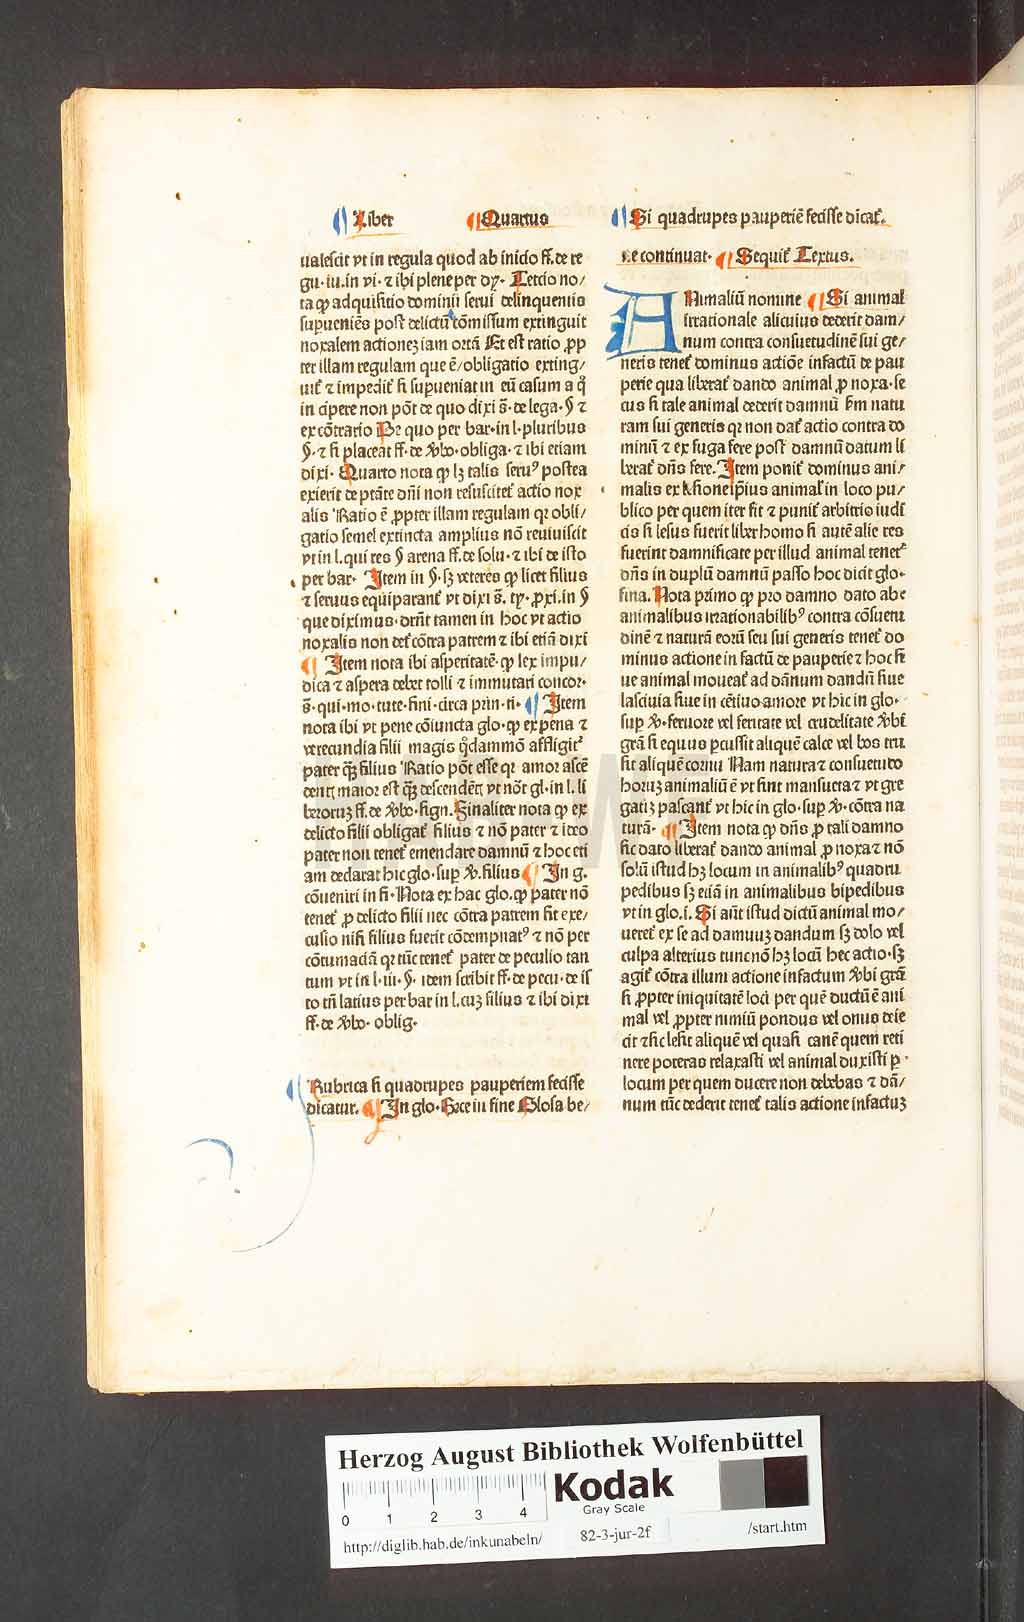 Liber Quartus
ualescit vt in regula quod ab inicio ff. de re
gu. iu. in vi. ⁊ ibi plene per dy. Tercio no/
ta ꝙ adquisitio dominii serui delinquentis
supueniēs post delictū cōmissum extinguit
noxalem actioneȝ iam ortā Et est ratio ꝓp
ter illam regulam que ē/ obligatio exting/
uit᷑ ⁊ impedit᷑ si supueniat in eū casum a q̊
in cipere non pōt de quo dixi s̄. de lega. § ⁊
ex cōtrario Pe quo per bar. in l. pluribus
§. ⁊ si placeat ff. de v̄bo. obliga. ⁊ ibi etiam
dixi. Quarto nota ꝙ lȝ talis seruꝰ postea
exierit de ptāte dn̄i non resuscitet᷑ actio nox
alis Ratio ē ꝓpter illam regulam qꝛ obli/
gatio semel extincta amplius nō reuiuiscit
vt in l. qui res § arena ff. de solu. ⁊ ibi de isto
per bar. Item in §. sȝ veteres ꝙ licet filius
⁊ seruus equiparant᷑ vt dixi s̄. ty. ꝓxi. in §
que diximus. drn̄t tamen in hoc vt actio
noxalis non det᷑ cōtra patrem ⁊ ibi etiā dixi
Item nota ibi asperitatē. ꝙ lex impu/
dica ⁊ aspera debet tolli ⁊ immutari concor.
s̄. qui. mo. tute. fini. circa prin. ri. Item
nota ibi vt pene cōiuncta glo. ꝙ ex pena ⁊
verecundia filii magis q̊dammō affligit᷑
pater qȝ filius Ratio pōt esse qꝛ amor ascē
dentꝭ maior est qȝ descendētꝭ vt nōt gl. in l. li
berorum ff. de v̄bo. sign. Finaliter nota ꝙ ex
delicto filii obligat᷑ filius ⁊ nō pater ⁊ ideo
pater non tenet᷑ emendare damnū ⁊ hoc eti
am declarat hic glo. sup v̄. filius In g.
cōueniri in fi. Nota ex hac glo. ꝙ pater nō
tenet᷑ ꝓ delicto filii nec cōtra patrem fit exe/
cusio nisi filius fuerit cōdempnatꝰ ⁊ nō per
cōtumaciā qꝛ tūc tenet᷑ pater de peculio tan
tum vt in l. iii. §. idem scribit ff. de pecu. de is
to tn̄ latius per bar in l. cuȝ filius ⁊ ibi dixi
ff. de v̄bo. oblig.
Rubrica si quadrupes pauperiem fecisse
dicatur. In glo. Hec in fine Glosa be/
Si quadrupes pauperiē fecisse dicat᷑.
ne continuat. Sequit᷑ Textus.
ANimaliū nomine Si animal
irrationale alicuius dederit dam/
num contra consuetudinē sui ge/
neris tenet᷑ dominus actiōe infactū de pau
perie qua liberat᷑ dando animal ꝓ noxa. se
cus si tale animal dederit damnū km natu
ram sui generis qꝛ non dat᷑ actio contra do
minū ⁊ ex fuga fere post damnū datum li
berat᷑ dn̄s fere. Item ponit᷑ dominus ani/
malis ex lesione ip̄ius animal᷑ in loco pu/
blico per quem iter fit ⁊ punit᷑ arbitrio iudi
cis si lesus fuerit liber homo si autē alie res
fuerint damnificate per illud animal tenet᷑
dn̄s in duplū damnū passo hoc dicit glo.
fina. Nota p̄imo ꝙ pro damno dato abe
animalibus irrationabilibꝰ contra cōsuetu
dinē ⁊ naturā eorū seu sui generis tenet᷑ do
minus actione in factū de pauperie ⁊ hoc si
ue animal moueat᷑ ad dānum dandū siue
lasciuia siue in cētiuo amore vt hic in glo.
sup v̄. feruore vel feritate vel crudelitate v̄bi
grā si equus ꝑcussit aliquē calce vel bos tru
sit aliquē cornu Nam natura ⁊ consuetudo
horuȝ animaliū ē vt sint mansueta ⁊ vt gre
gatiȝ pascant᷑ vt hic in glo. sup v̄. cōtra na
turā. Item nota ꝙ dn̄s ꝓ tali damno
sic dato liberat᷑ dando animal ꝓ noxa ⁊ nō
solū istud hȝ locum in animalibꝰ quadru
pedibus sȝ etiā in animalibus bipedibus
vt in glo. i. Si aūt istud dictū animal mo/
ueret᷑ ex se ad damnuȝ dandum sȝ dolo vel
culpa alterius tunc nō hȝ locū hec actio. sȝ
agit᷑ cōtra illum actione infactum v̄bi grā
si ꝓpter iniquitatē loci per quē ductū ē ani
mal vel ꝓpter nimiū pondus vel onus deie
cit ⁊ sic lesit aliquē vel quasi canē quem reti
nere poteras relaxasti vel animal duxisti p
locum per quem ducere non debebas ⁊ dā/
num tūc dederit tenet᷑ talis actione infactuȝ
HAB WF
Herzog August Bibliothek Wolfenbüttel
0 1 2 3 4
Kodak
Gray Scale
http://diglib.hab.de/inkunabeln/ 82-3-jur-2f /start.htm